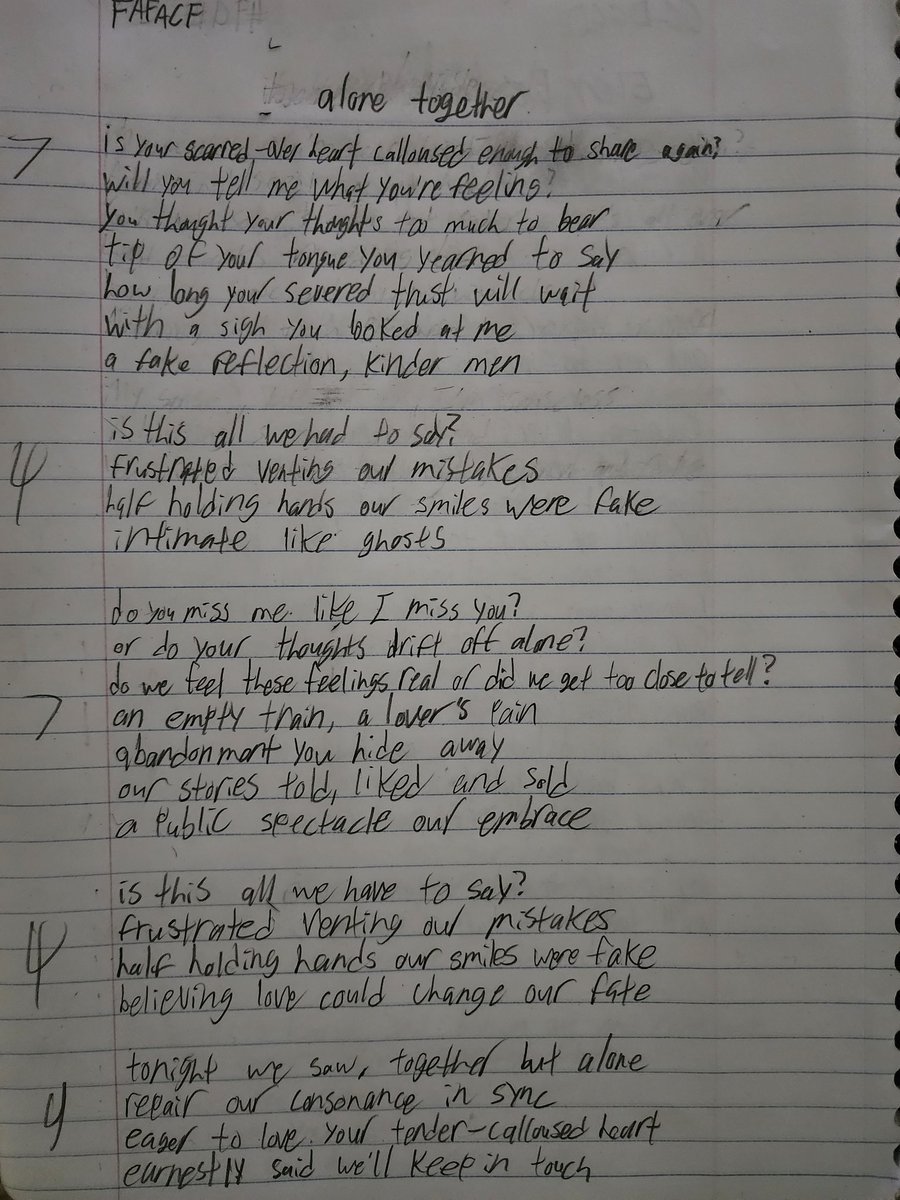 FAFACF
alone together
7 is your scarred-over heart calloused enough to share again?
will you tell me what you're feeling?
you thought your thoughts too much to bear
tip of your tongue you yearned to say
how long your severed trust will wait
with a sigh you looked at me
a fake reflection, kinder men
4 is this all we had to say?
frustrated venting our mistakes
half holding hands our smiles were fake
intimate like ghosts
do you miss me like I miss you?
or do your thoughts drift off alone?
do we feel these feelings real or did we get too close to tell?
7 an empty train, a lover's pain
abandonment you hide away
our stories told, liked and sold
a public spectacle our embrace
is this all we have to say?
frustrated venting our mistakes
4 half holding hands our smiles were fake
believing love could change our fate
tonight we saw, together but alone
4 repair our consonance in sync
eager to love your tender-calloused heart
earnestly said we'll keep in touch